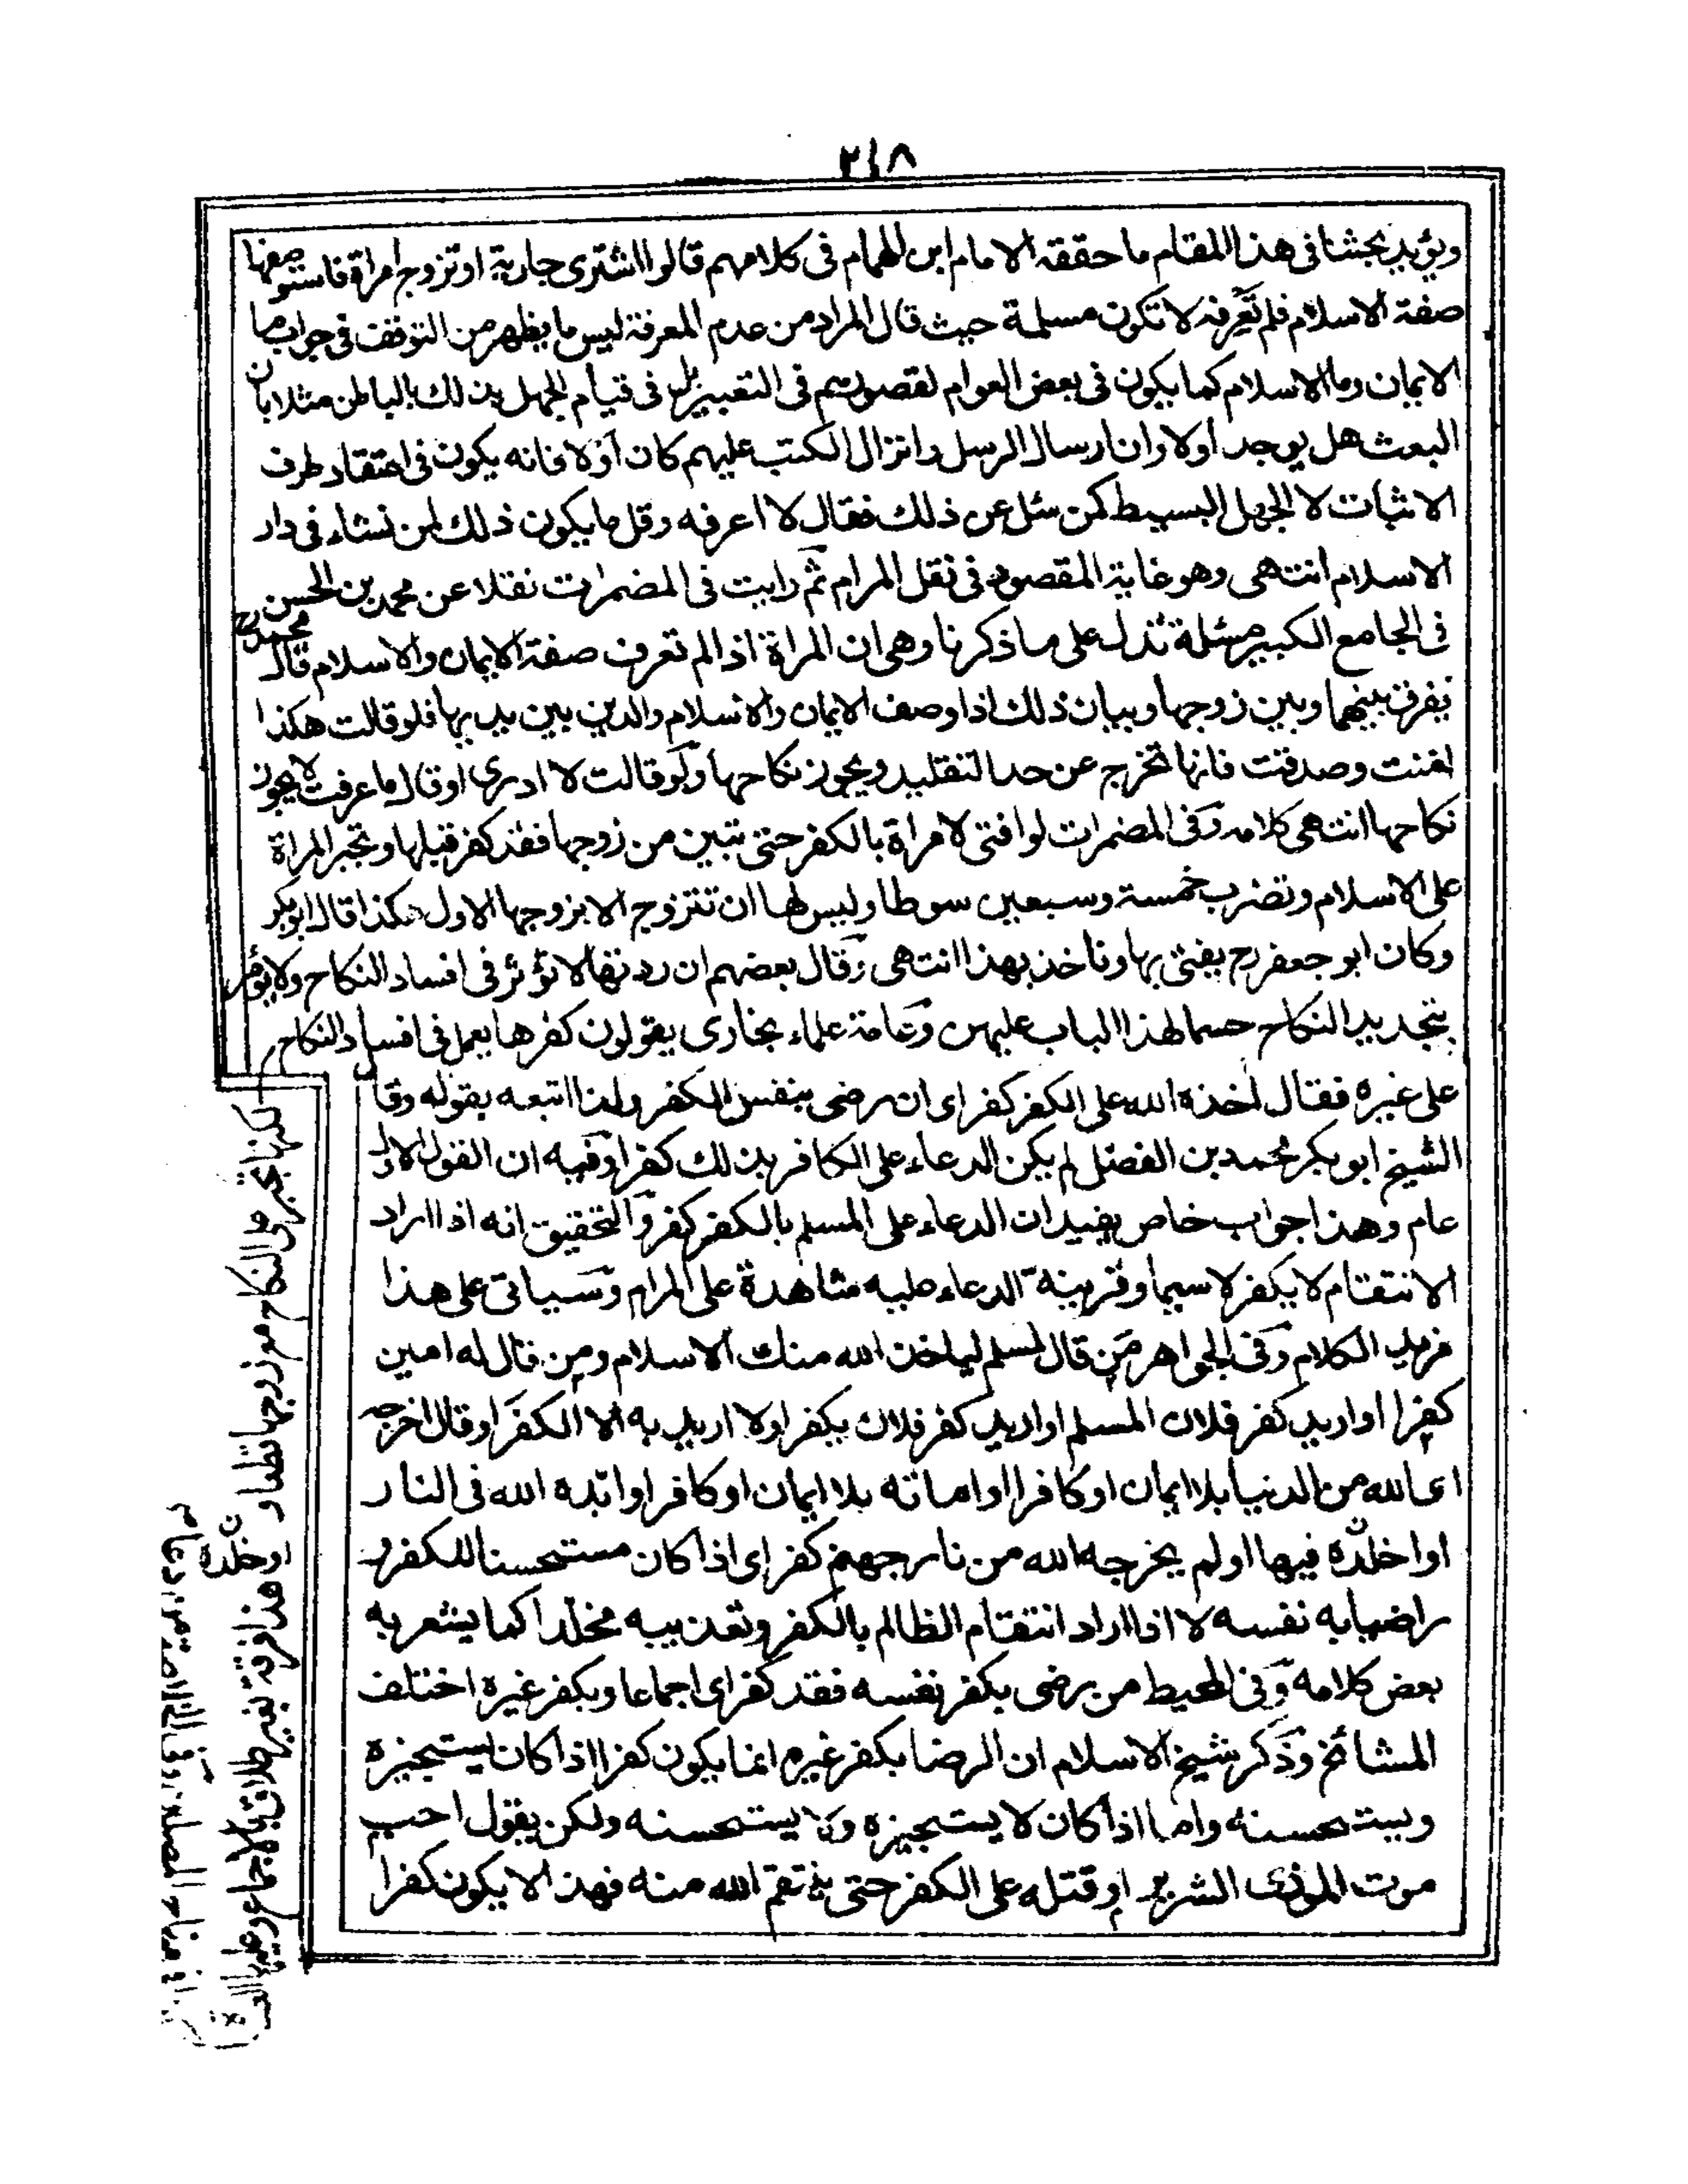 ٢١٨
ويؤيد بحثنا فى هذا المقام ما حققه الامام ابن الهمام فى كلامهم قالوا اشترى جارية او تزوج امراة فاستوصفها
صفة الاسلام فلم تعرفه لا تكون مسلمة حيث قال المراد من عدم المعرفة ليس ما يظهر من التوقف فى جواب ما
الايمان وما الاسلام كما يكون فى بعض العوام لقصورهم فى التعبير بل فى قيام الجهل بذلك بالباطن مثلا بان
البعث هل يوجد اولا وان ارسال الرسل وانزال الكتب عليهم كان اولا فانه يكون فى اعتقاد طرف
الاثبات لا الجهل البسيط كمن سئل عن ذلك فقال لا اعرفه وقل ما يكون ذلك لمن نشاء فى دار
الاسلام انتهى وهو غاية المقصود فى نقل المرام ثم رايت فى المضمرات نقلا عن محمد بن الحسن
فى الجامع الكبير مسئلة تدل على ما ذكرنا وهى ان المراة اذا لم تعرف صفة الايمان والاسلام قال محمد رح
يفرق بينهما وبين زوجها وبيان ذلك اذا وصف الايمان والاسلام والدين بين يديها فلو قالت هكذا
امنت وصدقت فانها تخرج عن حد التقليد ويجوز نكاحها ولو قالت لا ادرى او قال ما عرفت لا يجوز
نكاحها انتهى كلامه وفى المضمرات لو افتى لامراة بالكفر حتى تبين من زوجها فقد كفر قبلها وتجبر المراة
على الاسلام وتضرب خمسة وسبعين سوطا وليس لها ان تتزوج الا بزوجها الاول هكذا قال ابو بكر
وكان ابو جعفر رح يفتى بها وناخذ بهذا انتهى وقال بعضهم ان ردتها لا تؤثر فى افساد النكاح ولا يؤمر
بتجديد النكاح حسما لهذا الباب عليهن وعامة علماء بخارى يقولون كفرها يعمل فى افساد النكاح
على غيره فقال اخذه الله على الكفر كفر اى ان رضى بنفس الكفر ولذا اتبعه بقوله وقال
الشيخ ابو بكر محمد بن الفضل لم يكن الدعاء على الكافر بذلك كفرا وفيه ان القول الاول
عام وهذا جواب خاص يفيد ان الدعاء على المسلم بالكفر كفر والتحقيق انه اذا اراد
الانتقام لا يكفر لا سيما وقرينة الدعاء عليه مشاهدة على المرام وسياتى على هذا
مزيد الكلام وفى الجواهر من قال لمسلم لياخذ الله منك الاسلام ومن قال له امين
كفرا او اريد كفر فلان المسلم او اريد كفر فلان يكفر او لا اريد به الا الكفر او قال اخرجه
اى الله من الدنيا بلا ايمان او كافرا او اماته بلا ايمان او كافرا او ابده الله فى النار
او اخلده فيها او لم يخرجه الله من نار جهنم كفر اى اذا كان مستحسنا للكفر و
راضيا به نفسه لا اذا اراد انتقام الظالم بالكفر وتعذيبه مخلدا كما يشعر به
بعض كلامه وفى المحيط من رضى بكفر نفسه فقد كفر اى اجماعا وبكفر غيره اختلف
المشائخ وذكر شيخ الاسلام ان الرضا بكفر غيره انما يكون كفرا اذا كان يستجيزه
ويستحسنه واما اذا كان لا يستجيزه ولا يستحسنه ولكن يقول احب
موت الموذى الشرير او قتله على الكفر حتى ينتقم الله منه فهذا لا يكون كفرا
لكنها تجبر على النكاح مع زوجها
هذا فرقة بغير طلاق بالاجماع
او خلده ن